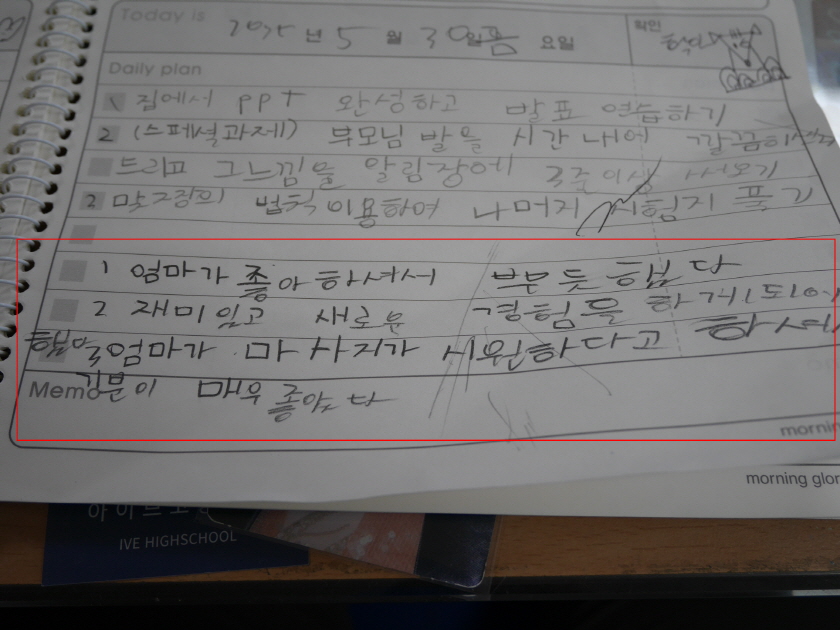 Today is 2025 년 5 월 30일 금 요일
확인
Daily plan
1 집에서 ppt 완성하고 발표 연습하기
2 (스페셜과제) 부모님 발을 시간 내어 깔끔히
드리고 그느낌을 알림장에 3줄이상 써오기
2 맞꼭장의 법칙이용하여 나머지 시험지 풀기
1 엄마가 좋아하셔서 뿌듯했다
2 재미있고 새로운 경험을 하게되어
행복 엄마가 마사지가 시원하다고 하셔서
기분이 매우 좋았다
Memo
morning
morning glor
IVE HIGHSCHOOL